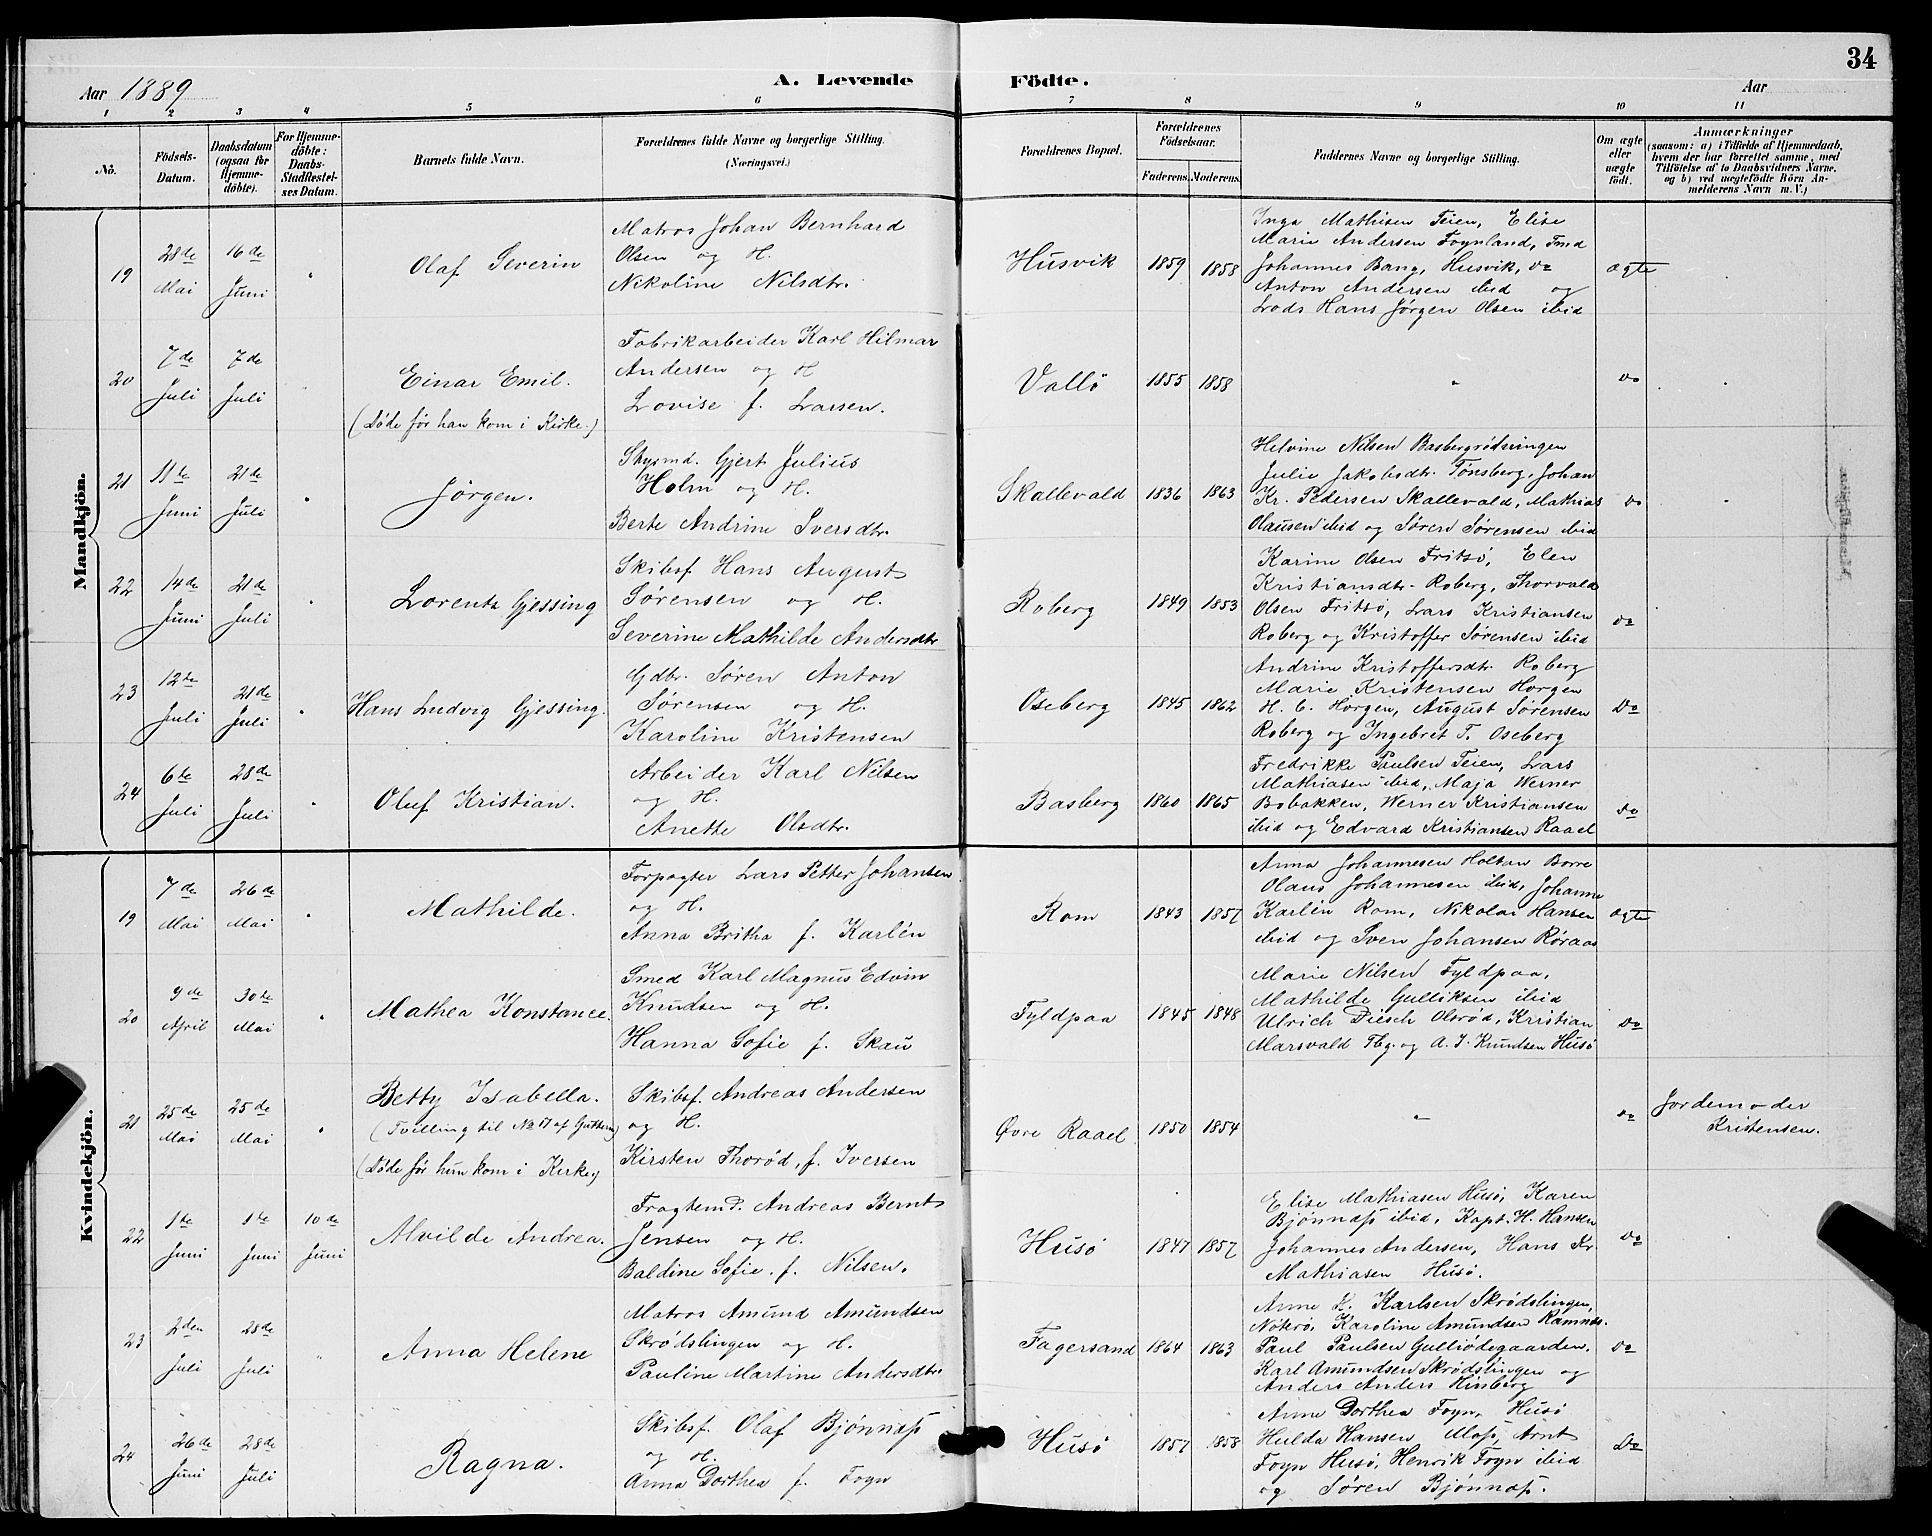 34
Aar 1889
A. Levende Födte.
Aar
1 2 3 4 5 6 7 8 9 10 11
No.
Födsels-Datum.
Daabsdatum (ogsaa for Hjemme-döbte).
For Hjemme-döbte: Daabs-Stadfestel-ses Datum.
Barnets fulde Navn.
Forældrenes fulde Navne og borgerlige Stilling. (Næringsvei.)
Forældrenes Bopæl.
Forældrenes Födselsaar.
Faderens. Moderens.
Faddernes Navne og borgerlige Stilling.
Om ægte eller uægte födt.
Anmærkninger
(saasom: a) i Tilfælde af Hjemmedaab, hvem der har forrettet samme, med Tilföielse af to Daabsvidners Navne, og b) ved uægtefödte Börn An-melderens Navn m. V.)
Mandkjön.
19
28de Mai
16de Juni
Olaf Severin
Matros Johan Bernhard
Olsen og H.
Nikoline Nilsdtr.
Husvik
1859 1858
Inga Mathisen Teien, Elise
Marie Andersen Foynland, Fmd
Johannes Bang, Husvik, do
Anton Andersen ibid og
Lods Hans Jørgen Olsen ibid
ægte
20
7de Juli
7de Juli
Einar Emil.
(Døde før han kom i Kirke.)
Fabrikarbeider Karl Hilmar
Andersen og H
Lovise f. Larsen.
Vallö
1855 1858
do
21
11te Juni
21de Juli
Jørgen.
Gjert Julius
Holm og H.
Berte Andrine Iversdtr.
Skallevald
1836 1863
Helvine Nilsen Basbergrødsvingen
Julie Jakobsdtr. Tønsberg, Johan
Kr. Pedersen Skallevald, Mathias
Olausen ibid og Søren Sørensen ibid
do
22
14de Juni
21de Juli
Lorentz Gjessing
Skibsf. Hans August
Sørensen og H.
Severine Mathilde Andersdtr
Roberg
1849 1853
Karine Olsen Fritsö, Elen
Kristiansdtr. Roberg, Thorvald
Olsen Fritsö, Lars Kristiansen
Roberg og Kristoffer Sørensen ibid
do
23
12te Juli
21de Juli
Hans Ludvig Gjessing.
Gdbr. Søren Anton
Sørensen og H.
Karoline Kristensen
Oseberg
1845 1862
Andrine Kristoffersdtr. Roberg
Marie Kristensen Horgen
H. C. Horgen, August Sørensen
Roberg og Ingebret T. Oseberg
Do
24
6te Juli
28de Juli
Oluf Kristian.
Arbeider Karl Nilsen
og H.
Anette Olsdtr.
Basberg
1860 1865
Fredrikke Paulsen Teien, Lars
Mathiasen ibid, Maja Werner
Bobakken, Werner Kristiansen
ibid og Edvard Kristiansen Raael
do
Kvindekjön.
19
7de Mai
26de Mai
Mathilde.
Forpagter Lars Petter Johansen
og H.
Anna Britha f. Karlén
Rom
1843 1857
Anna Johannesen Holtan Borre
Olaus Johannesen ibid, Johanne
Karlén Rom, Nikolai Hansen
ibid og Sven Johansen Röraas
ægte
20
9de April
30te Mai
Mathea Konstance.
Smed Karl Magnus Edvin
Knudsen og H.
Hanna Sofie f. Skau
Fyldpaa
1845 1848
Marie Nilsen Fyldpaa,
Mathilde Gulliksen ibid
Ulrich Diesch Olsrød, Kristian
Marsvald Tbg. og A. J. Knudsen Husö
Do
21
25de Mai
25de Mai
Betty Isabella.
(Tvilling til No 17 af Guttern)
(Døde før hun kom i Kirke)
Skibsf. Andreas Andersen
og H.
Kirsten Thorød, f. Iversen
Øvre Raael
1850 1854
do
Jordemoder
Kristensen.
22
1te Juni
1te Juni
10de Juni
Alvilde Andrea.
Fragtemd. Andreas Bernt
Jensen og H.
Baldine Sofie f. Nilsen.
Husö
1847 1857
Elise Mathiasen Husö, Karen
Bjønnæss ibid, Kapt. H. Hansen
Johannes Andersen, Hans Kr.
Mathiasen Husö.
do
23
2den Juli
28de Juli
Anna Helene
Matros Amund Amundsen
Skrödslingen og H.
Pauline Martine Andersdtr.
Fagersand
1864 1863
Anne H. Karlsen Skrödslingen,
Nöterö, Karoline Amundsen Ramnes.
Paul Paulsen Gulliödegaarden.
Karl Amundsen Skrödslingen og
Anders Anders Hinsberg
do
24
26de Juni
28de Juli
Ragna.
Skibsf. Olaf Bjønnæss
og H.
Anna Dorthea f. Foyn
Husö
1857 1858
Anne Dorthea Foyn, Husö
Hulda Hansen Moss, Arnt
Foyn Husö, Henrik Foyn ibid
og Søren Bjønnæss.
Do